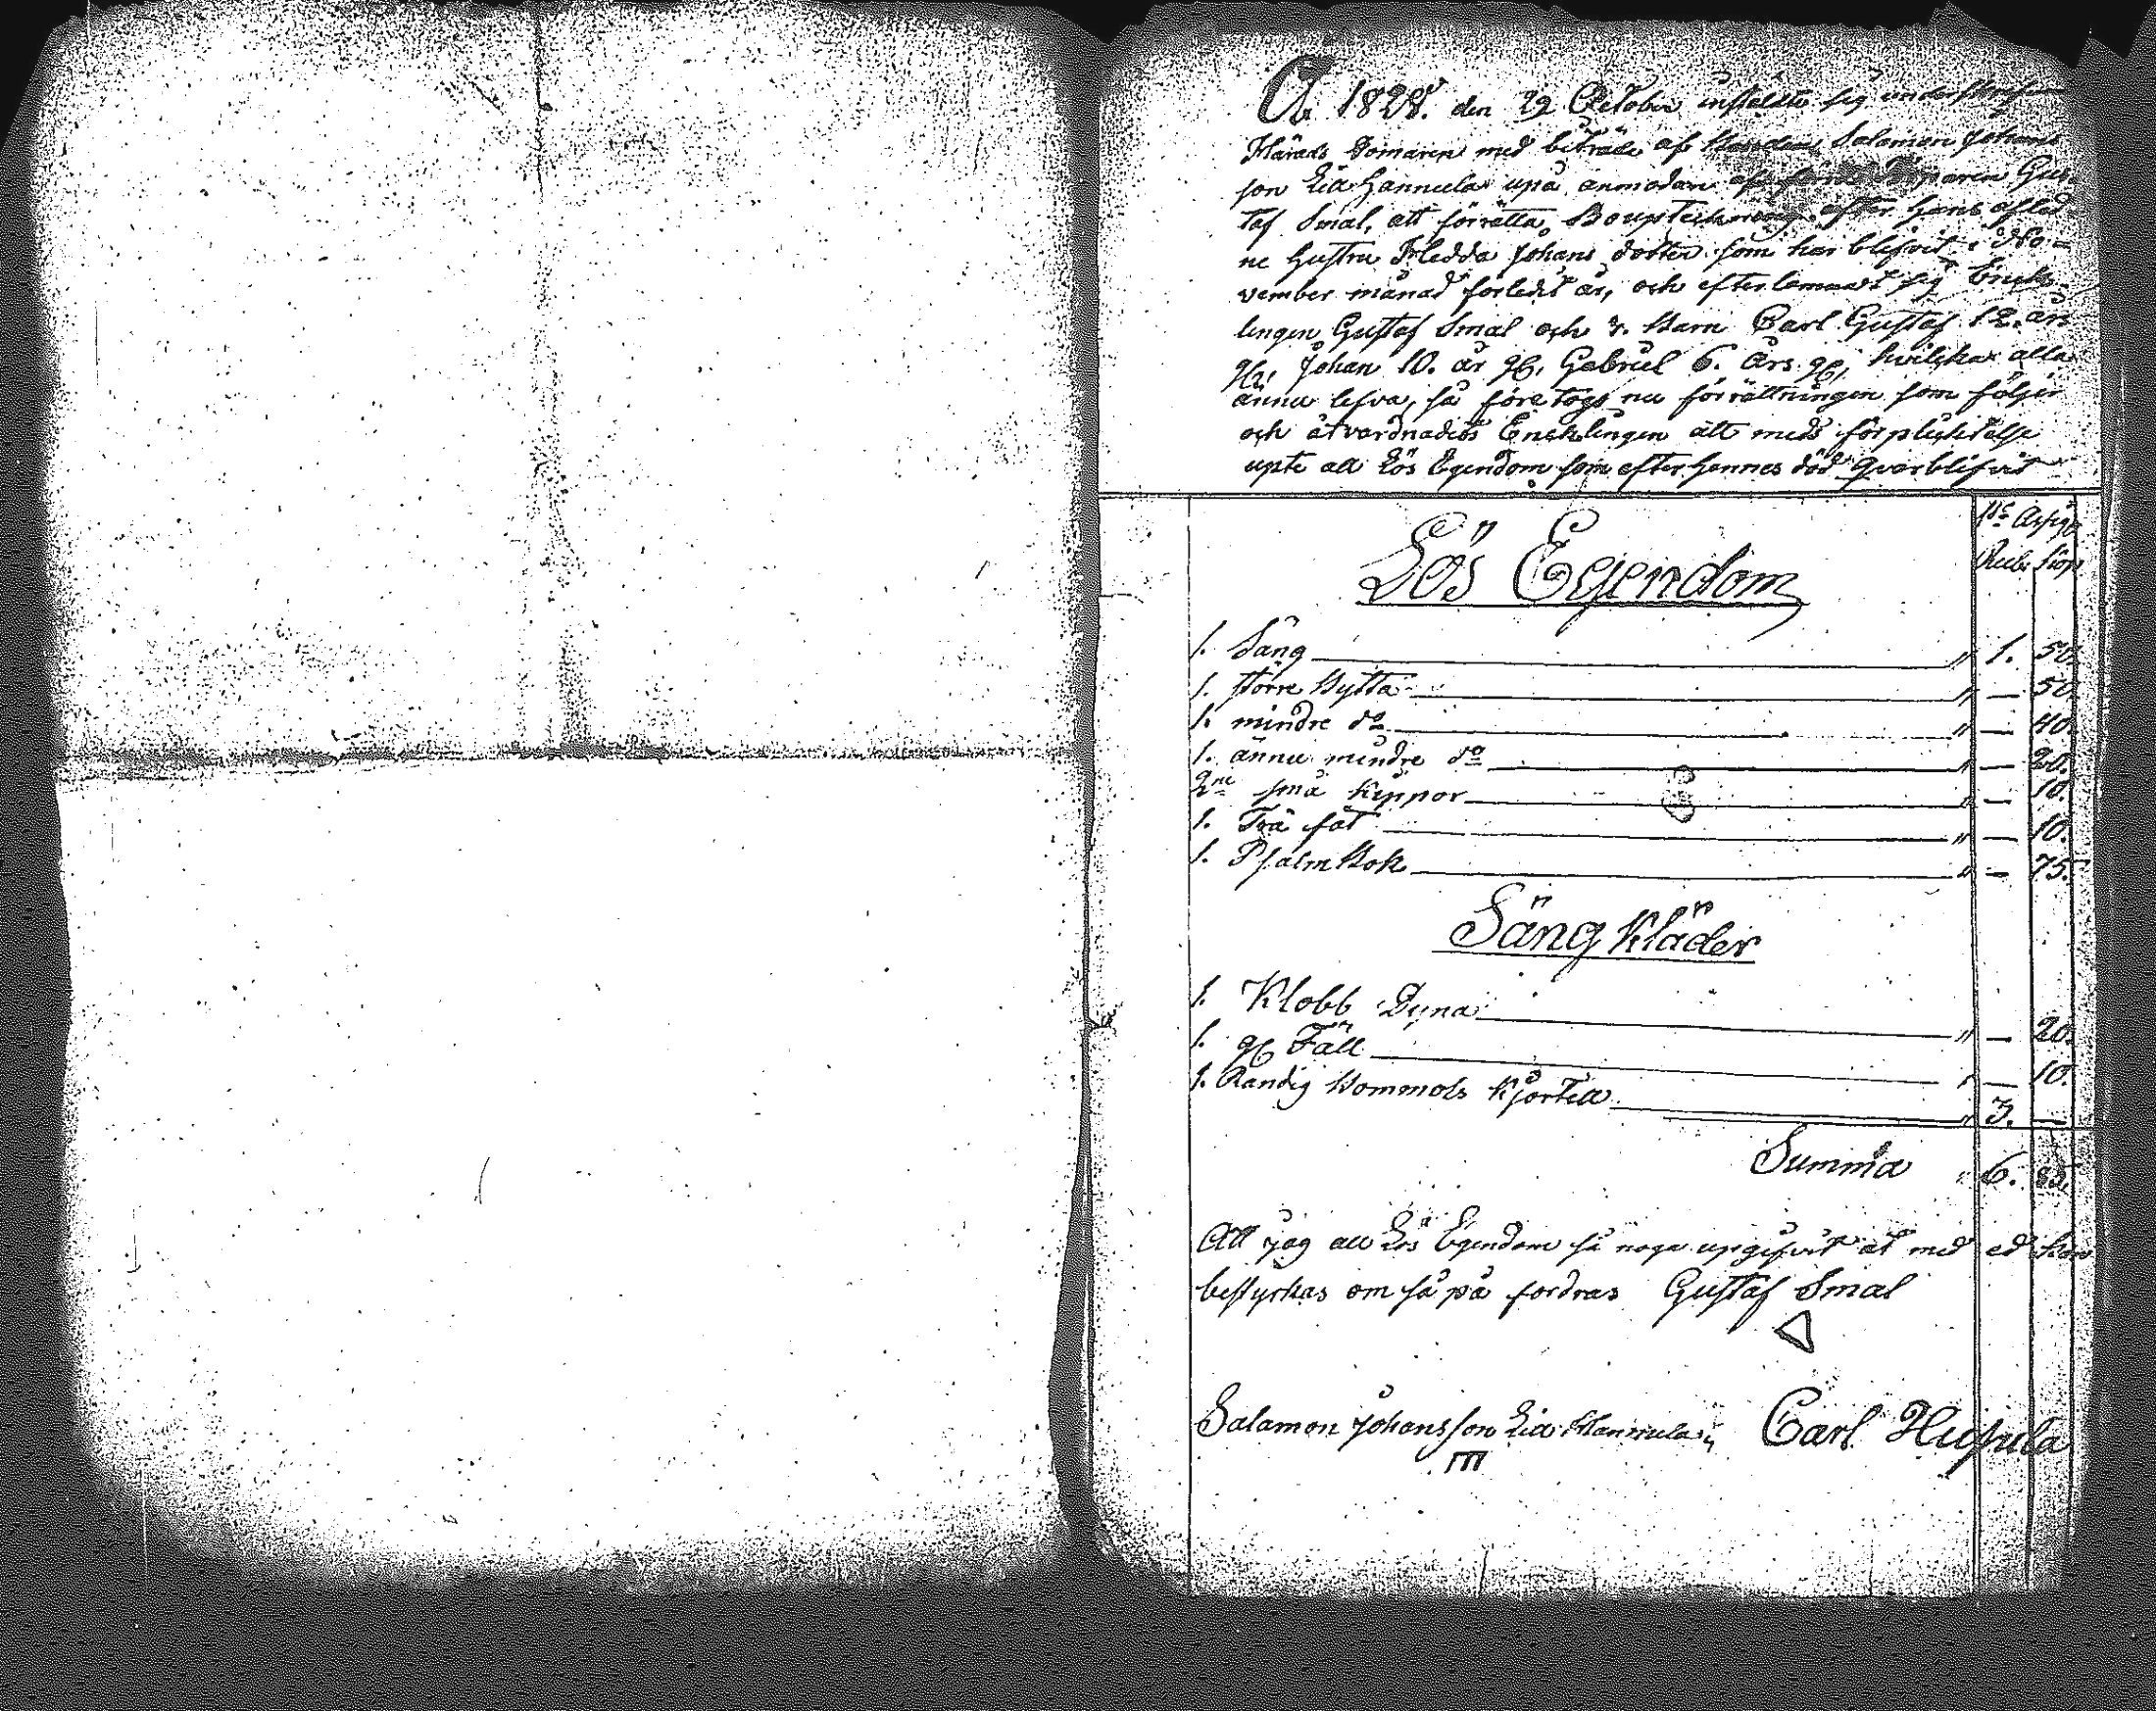 År 1828. den 29 October instälte sig underskrefven
Härads Domaren med biträde af Bonden Salamon Johans
son Lill Hannula upå anmodan af Gus
taf Smal, att förrätta Boupteckning efter hans afled
ne Hustru Hedda Johans dotter som har blifvit i No=
vember månad förledit år, och efterlemnat sig Enck=
lingen Gustaf Smal och 3. Barn Carl Gustaf 12. års
gl, Johan 10. år gl, Gabriel 6. års gl, hvilka alla
ännu lefva, så företogs nu förrättningen som följer
och åtvardnades Encklingen att med förplicktelse
upte all Lös Egendom som efter hennes död qvarblifvit
Bco Assign
Rub. Kop
Lös Egendom
1. Säng " 1. 50.
1. större Bytta " — 50
1. mindre do " — 40.
1. ännu mindre do " — 20.
2ne små kippor " — 10.
1. Trä fat " — 10.
1. Psalm Bok " — 75.
Säng kläder
1. Klobb Dyna " — 20.
1. gl Fäll " — 10.
1. Randig Bommols kjortel " 3. —
Summa " 6. 85.
Att jag all Lös Egendom så noga upgifvit at med ed kan
bestyrkas om så på fordras Gustaf Smal
Salamon Johansson Lill Hannula Carl Hujula